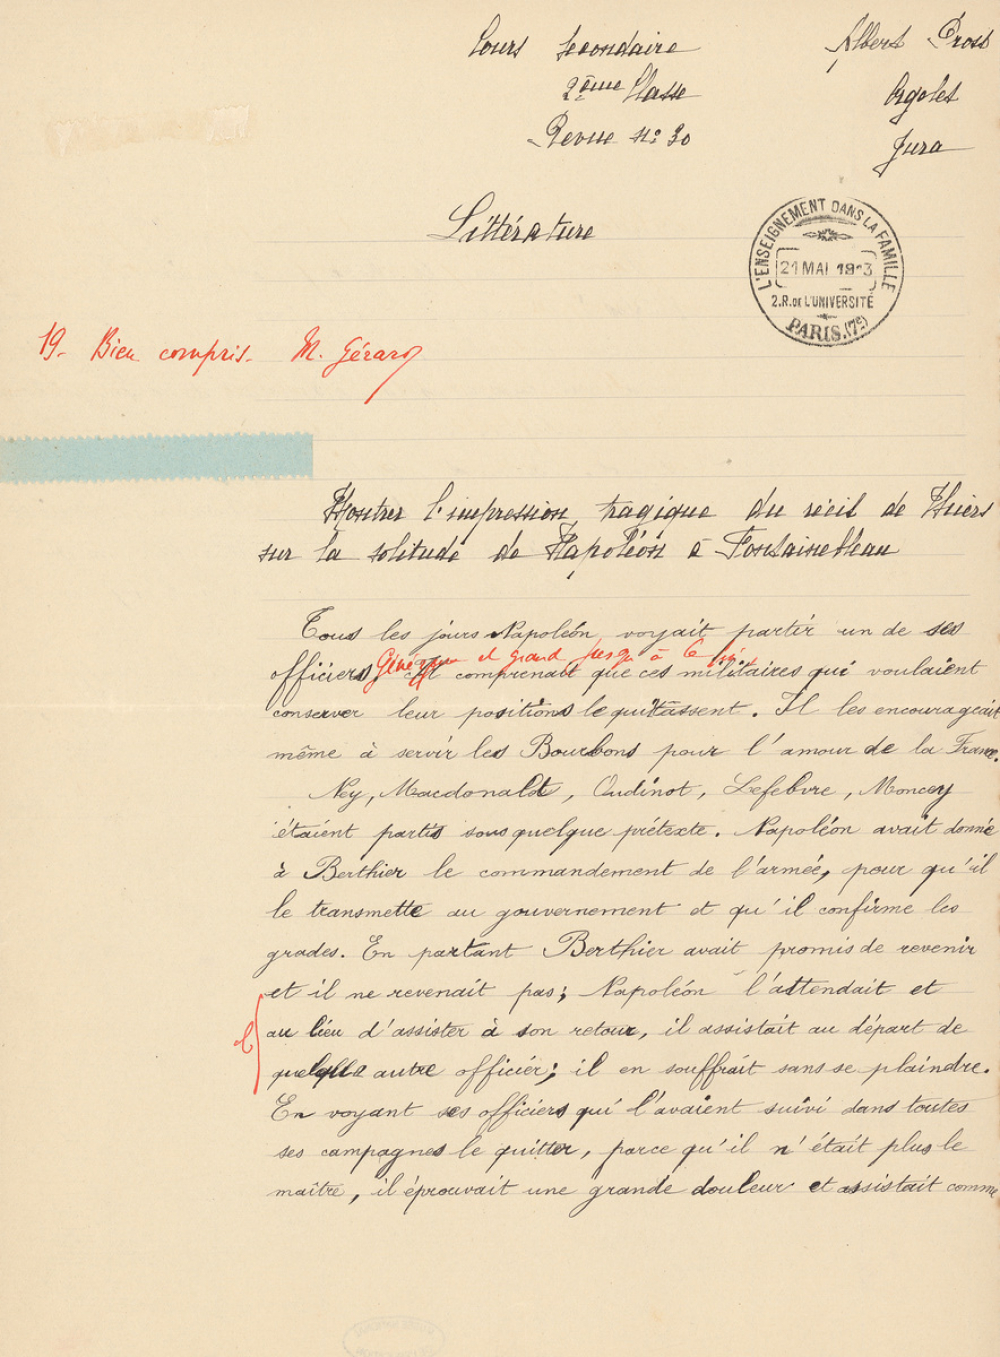 Cours Secondaire
2ème Classe
Revue No 30
Albert Prost
Orgelet
Jura
Littérature
L'ENSEIGNEMENT DANS LA FAMILLE
21 MAI 1913
2.R. de L'UNIVERSITÉ
PARIS.(7e)
19. Bien compris. M. Gérard
Montrer l'impression tragique du récit de Thiers
sur la solitude de Napoléon à Fontainebleau
Tous les jours Napoléon, voyait partir un de ses
Généreux et grand jusqu'à la fin
officiers, comprenait que ces militaires qui voulaient
conserver leur positions le quittassent. Il les encourageait
même à servir les Bourbons pour l'amour de la France.
Ney, Macdonald, Oudinot, Lefebvre, Moncey
étaient partis sous quelque prétexte. Napoléon avait donné
à Berthier le commandement de l'armée, pour qu'il
le transmette au gouvernement et qu'il confirme les
grades. En partant Berthier avait promis de revenir
et il ne revenait pas; Napoléon l'attendait et
au lieu d'assister à son retour, il assistait au départ de
quelque autre officier; il en souffrait sans se plaindre.
En voyant ses officiers qui l'avaient suivi dans toutes
ses campagnes le quitter, parce qu'il n'était plus le
maître, il éprouvait une grande douleur et assistait comme